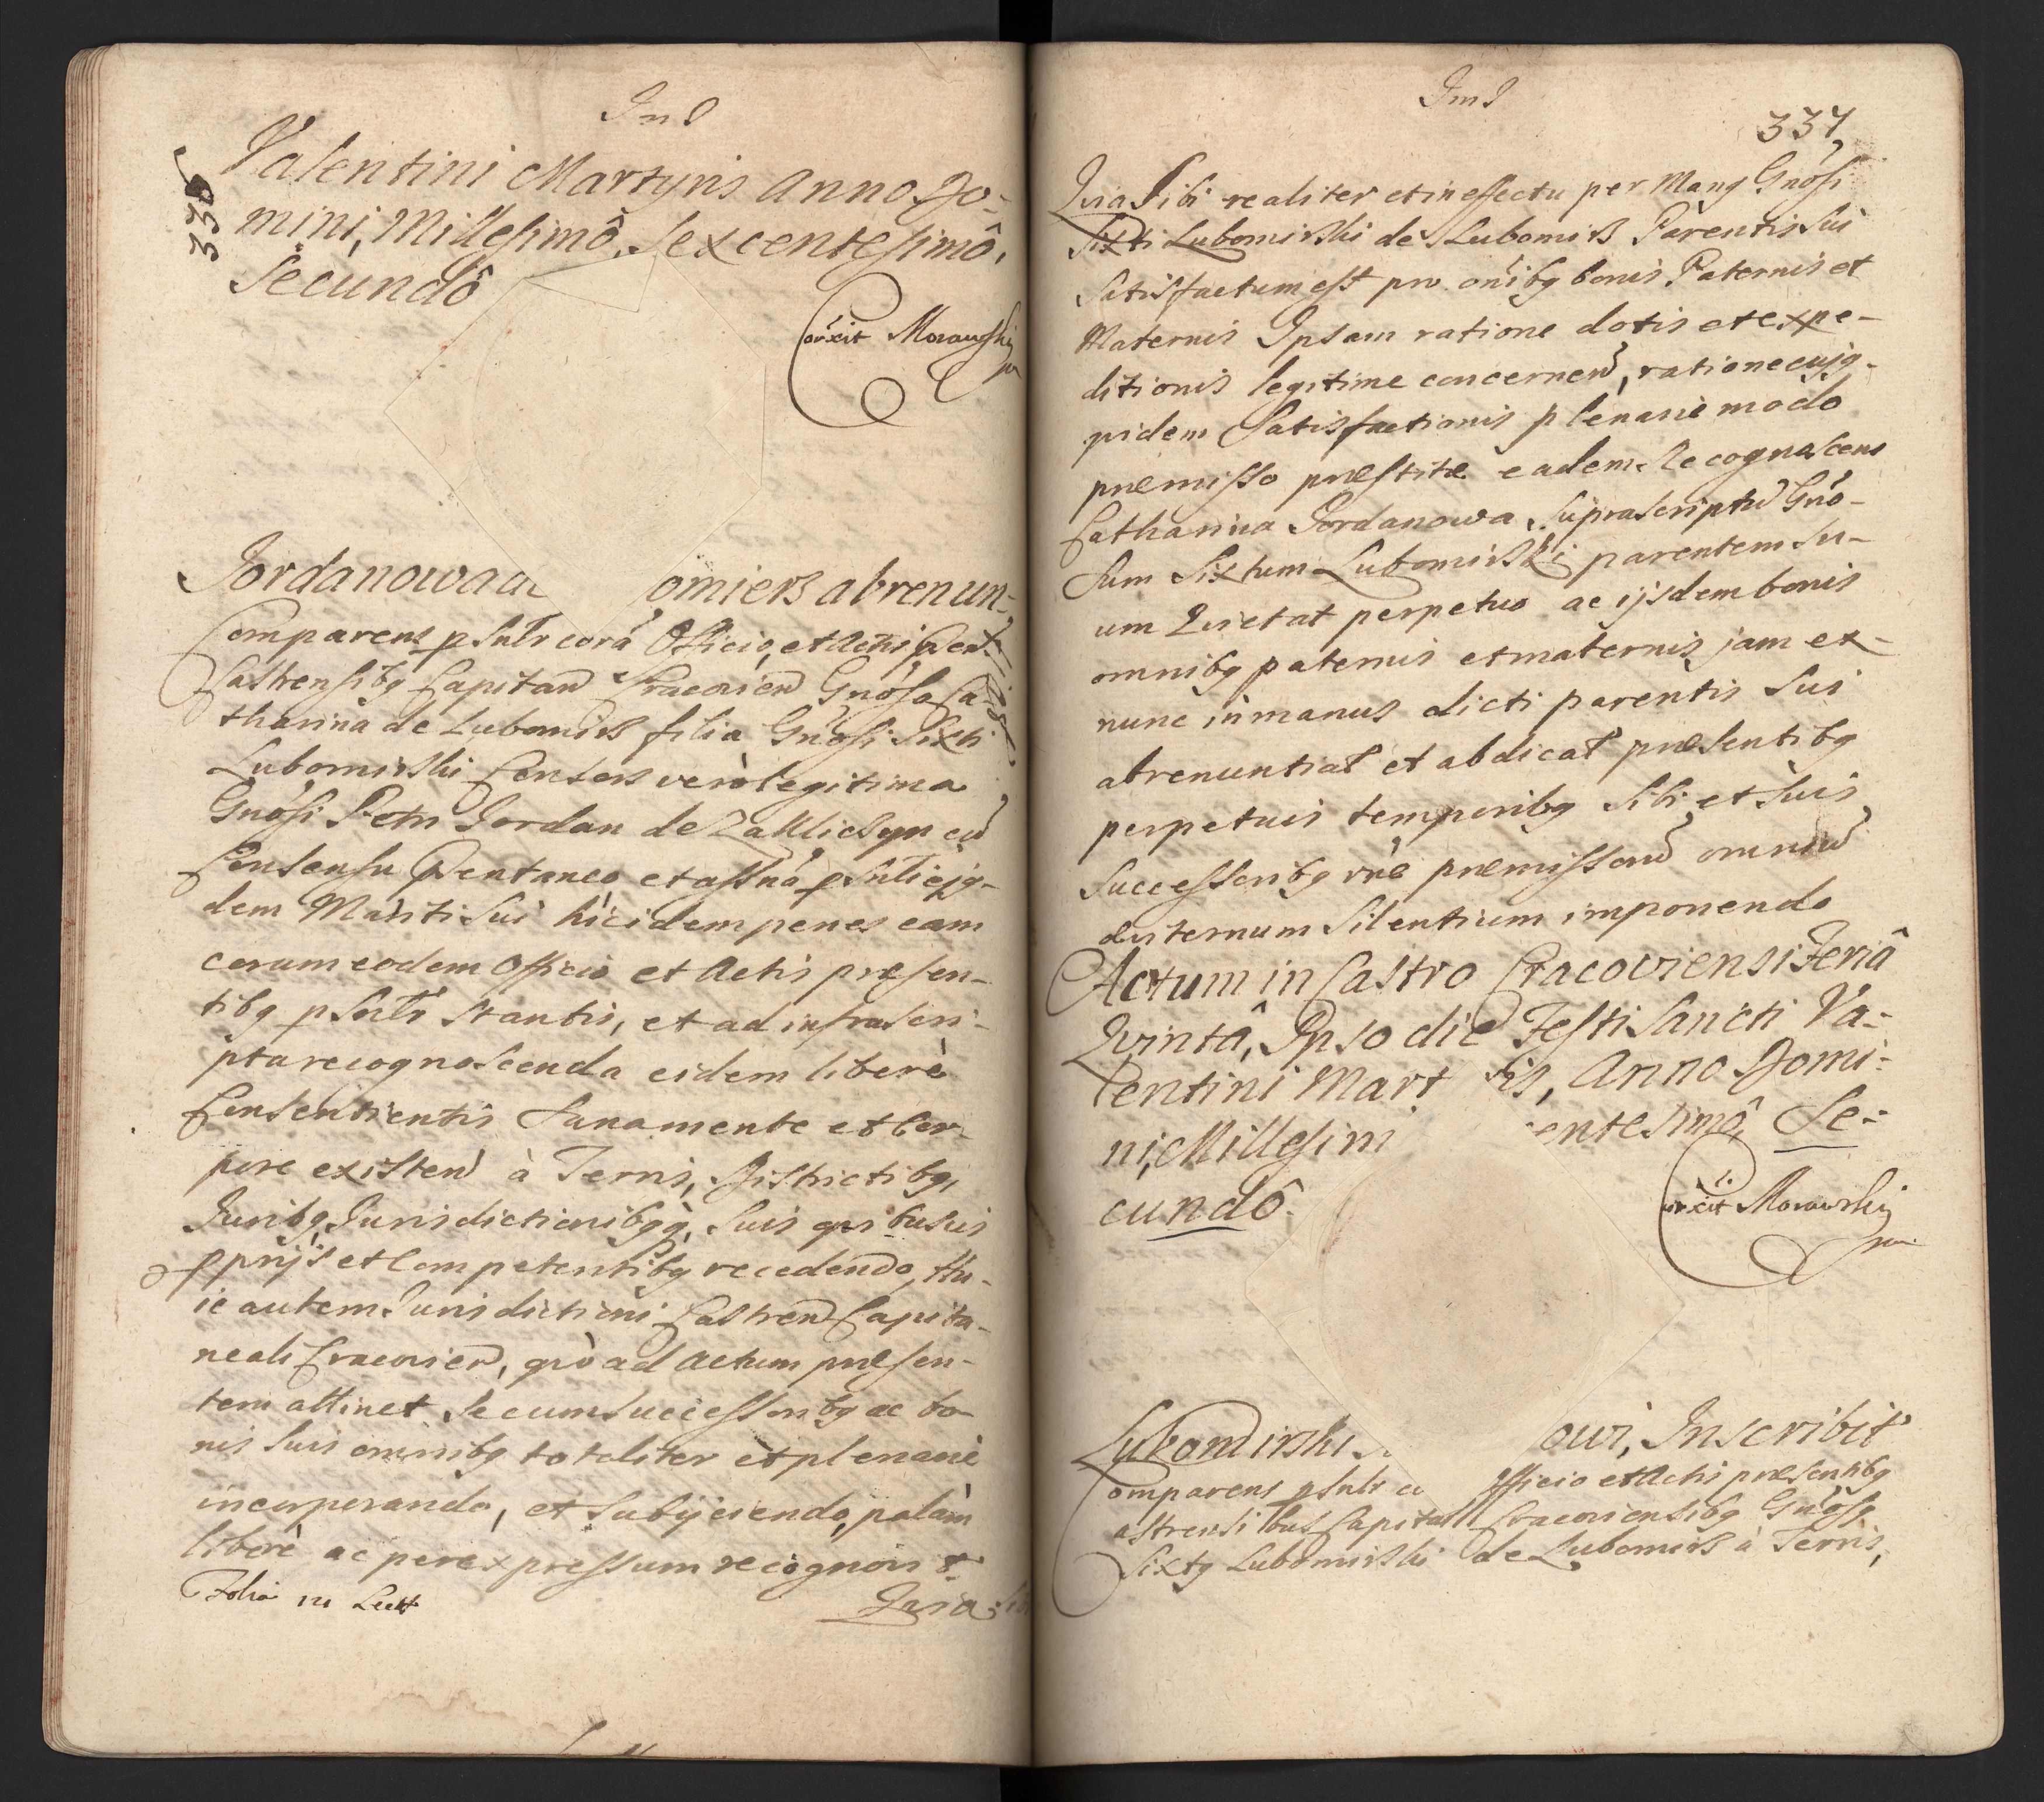 Ind
336
Valentini Martyris Anno Do-
mini, Millesimô Sexcentesimô,
Secundô
Correxit Morawski
Jordanowa a omiers abrenun-
Comparens psnlr corā Officio, et Actis
Castrensibg Capitan Cracovien Gnosa Ca-
tharina de Lubomirs filia Gnosi Sixti
Lubomirski Consors verò legitima
Gnosi Petri Jordan de Zakliczyn cū
Consensu et assña psnli ejg-
dem Mariti Sui hic idem penes eam
coram eodem Officio et Actis præsen-
tibg psnlr stantis, et ad infrascri-
pta recognoscenda eidem liberè
Consentientis Sana mente et Cor-
pore existen à Terris, Districtibg,
Juribg, Jurisdictionibgq, Suis quibusvis
pprijs et Competentibg recedendo, Hu-
ic autem Jurisdictioni Castren Capita-
neali Cracovien, quò ad Actum præsen-
tem attinet Se cum Successoribg ac bo-
nis Suis omnibg totaliter et plenariè
incorporando, et Subijciendo, palàm
liberè ac per expressum recognovit
Folia in Lectt
Quia
Ind
337
Quia Sibi realiter et in effectu per Mang Gnosi
Sixti Lubomirski de Lubomirs Parentis Sui
Satisfactum est pro oñibg bonis Paternis et
Maternis Ipsam ratione dotis et expe-
ditionis legitime concernen, ratione cujg-
quidem Satisfactionis plenarie modo
præmisso præstitæ eadem Recognoscens
Catharina Jordanowa Suprascriptū Gno-
sum Sixtum Lubomirski parentem Su-
um Quietat perpetuo ac ijsdem bonis
omnibg paternis et maternis jam ex-
nunc in manus dicti parentis Sui
abrenuntiat et abdicat præsentibg
perpetuis temporibg Sibi et Suis
Successoribg rñe præmissorū omniū
æuternum Silentium imponendo
Actum in Castro Cracoviensi Feriâ
Quintâ, Ipso die Festi Sancti Va-
lentini Mart is, Anno Domi-
ni, Millesim entesimô Se-
cundô.
Correxit Morawski
Lubomirski oui, Inscribit
Comparens psnlr co Officio et Actis præsentibg
Castrensibus Capital Cracoviensibg Gnosg
Sixtg Lubomirski de Lubomirs à Terris,